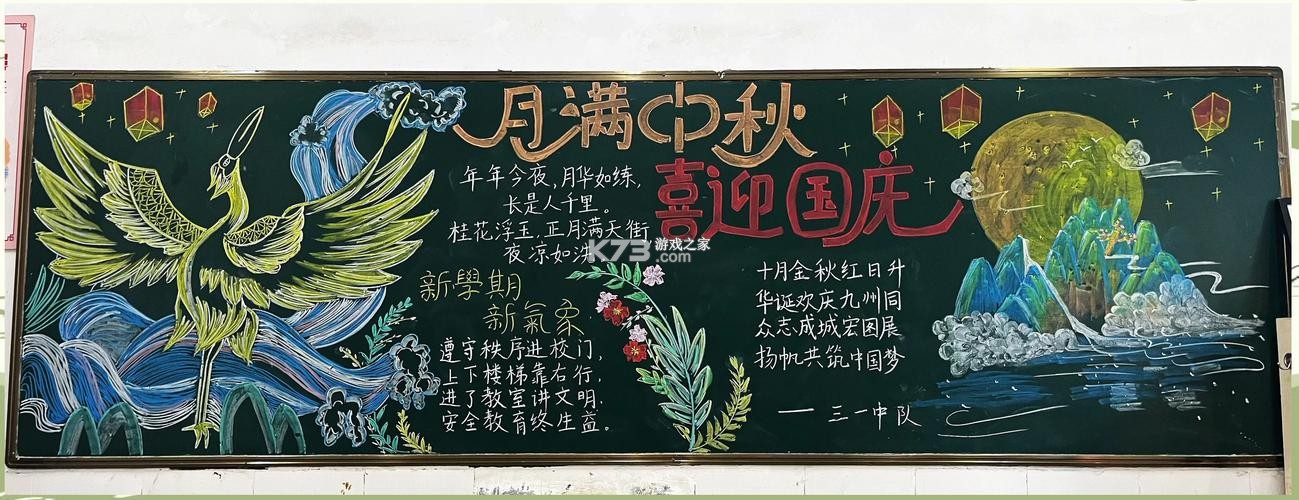 月满中秋
喜迎国庆
年年今夜,月华如练,
长是人千里。
桂花浮玉,正月满天街
夜凉如洗
K73游戏之家
.com
新學期
新氣象
遵守秩序进校门,
上下楼梯靠右行,
进了教室讲文明,
安全教育终生益。
十月金秋红日升
华诞欢庆九州同
众志成城宏图展
扬帆共筑中国梦
一三一中队